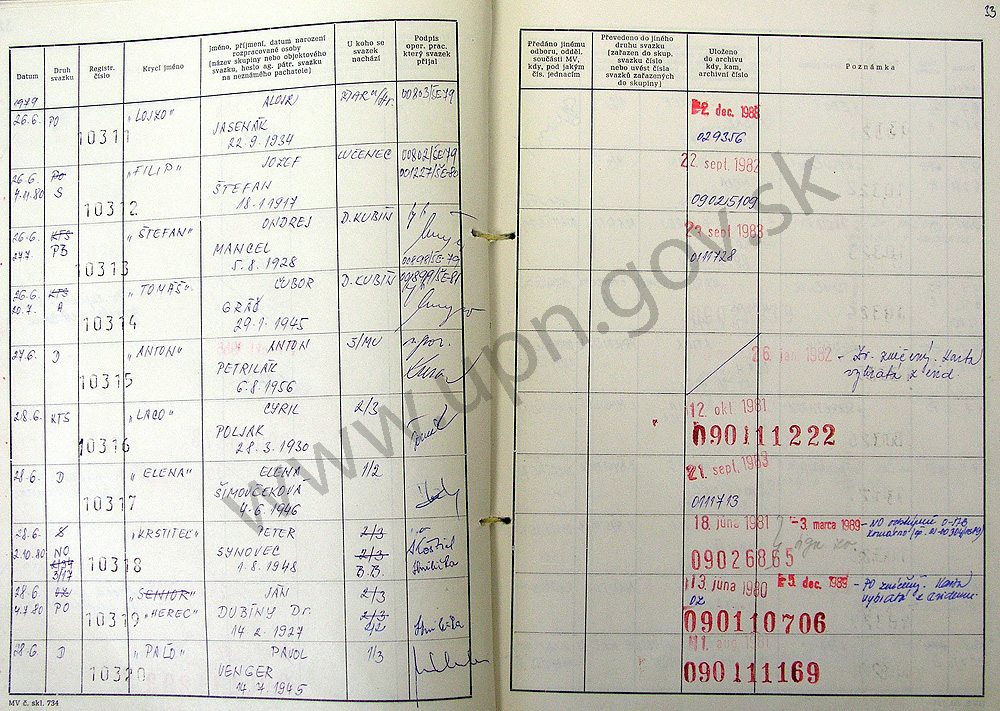 33
Datum
Druh svazku
Registr. číslo
Krycí jméno
Jméno, příjmení, datum narození
rozpracované osoby
(název skupiny nebo objektového
svazku, heslo ag. pátr. svazku
na neznámého pachatele)
U koho se
svazek
nachází
Podpis
oper. prac.
který svazek
přijal
Předáno jinému
odboru, odděl.
součásti MV,
kdy, pod jakým
čís. jednacím
Převedeno do jiného
druhu svazku
(zařazen do skup.
svazku číslo
nebo uvést čísla
svazků zařazených
do skupiny)
Uloženo
do archivu
kdy, kam,
archivní číslo
Poznámka
1979
26.6. PO 10311 "LOJZO" ALOJZ 00803/ŠE-79
JASENÁK
22.9.1934
dec. 1988
029356
26.6. PO 10312 "FILIP" JOZEF LUČENEC 00802/ŠE-79
7.11.80 S ŠTEFAN 001227/ŠE-80
18.1.1917
22. sept. 1982
090215109
26.6. KTS 10313 "ŠTEFAN" ONDREJ D.KUBÍN
27.7. PB MANCEL
5.8.1928 00898/ŠE-79
sept. 1983
0111728
26.6. KTS 10314 "TOMÁŠ" ĽUBOR D.KUBÍN 00899/ŠE-81
20.7. A
29.1.1945
27.6. D 10315 "ANTON" ANTON 3/MV
PETRILÁK
6.8.1956
26. jan. 1982 - Zv. zničený. Karta
vybratá z evid.
28.6. KTS 10316 "LACO" CYRIL 2/3
POLJAK
28.3.1930
12. okt. 1981
090111222
28.6. D 10317 "ELENA" ELENA 1/2
ŠIMOVČEKOVÁ
4.6.1946
21. sept. 1983
0111713
28.6. S 10318 "KRSTITEĽ" PETER 2/3
2.10.80 NO SYNOVEC 2/3
3/17 1.8.1948 B.B.
18. júna 1981 -3. marca 1989 - NO
09026865
28.6. 10319 "SENIOR" JÁN 2/3
4.7.80 PO "HEREC" DUBÍNY Dr. 2/3
14.2.1927 2/2
13. júna 1980 dec. 1989 - PO zničený. Karta
vybratá z evidencie
090110706
28.6. D 10320 "PAĽO" PAVOL 1/3
VENGER
14.7.1945
090111169
MV č. skl. 734
www.upn.gov.sk